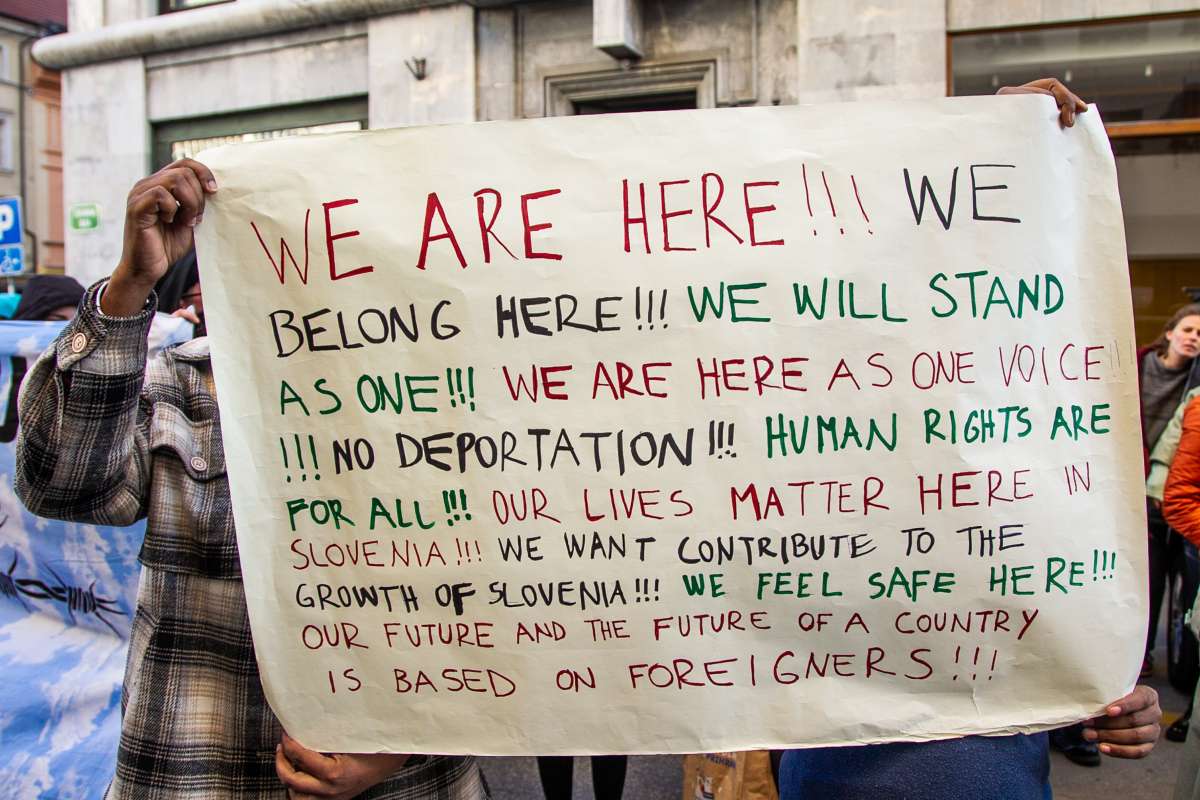 WE ARE HERE!!! WE
BELONG HERE!!! WE WILL STAND
AS ONE!!! WE ARE HERE AS ONE VOICE!!
!!! NO DEPORTATION!!! HUMAN RIGHTS ARE
FOR ALL!!! OUR LIVES MATTER HERE IN
SLOVENIA!!! WE WANT CONTRIBUTE TO THE
GROWTH OF SLOVENIA!!! WE FEEL SAFE HERE!!!
OUR FUTURE AND THE FUTURE OF A COUNTRY
IS BASED ON FOREIGNERS!!!
P